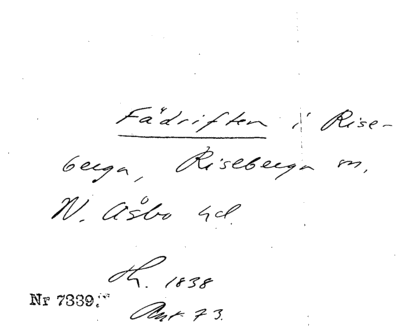 Fädriften i Rise-
berga, Riseberga m.
N. Åsbo hd.
Th. 1838
Nr 7339.
Ant 73.